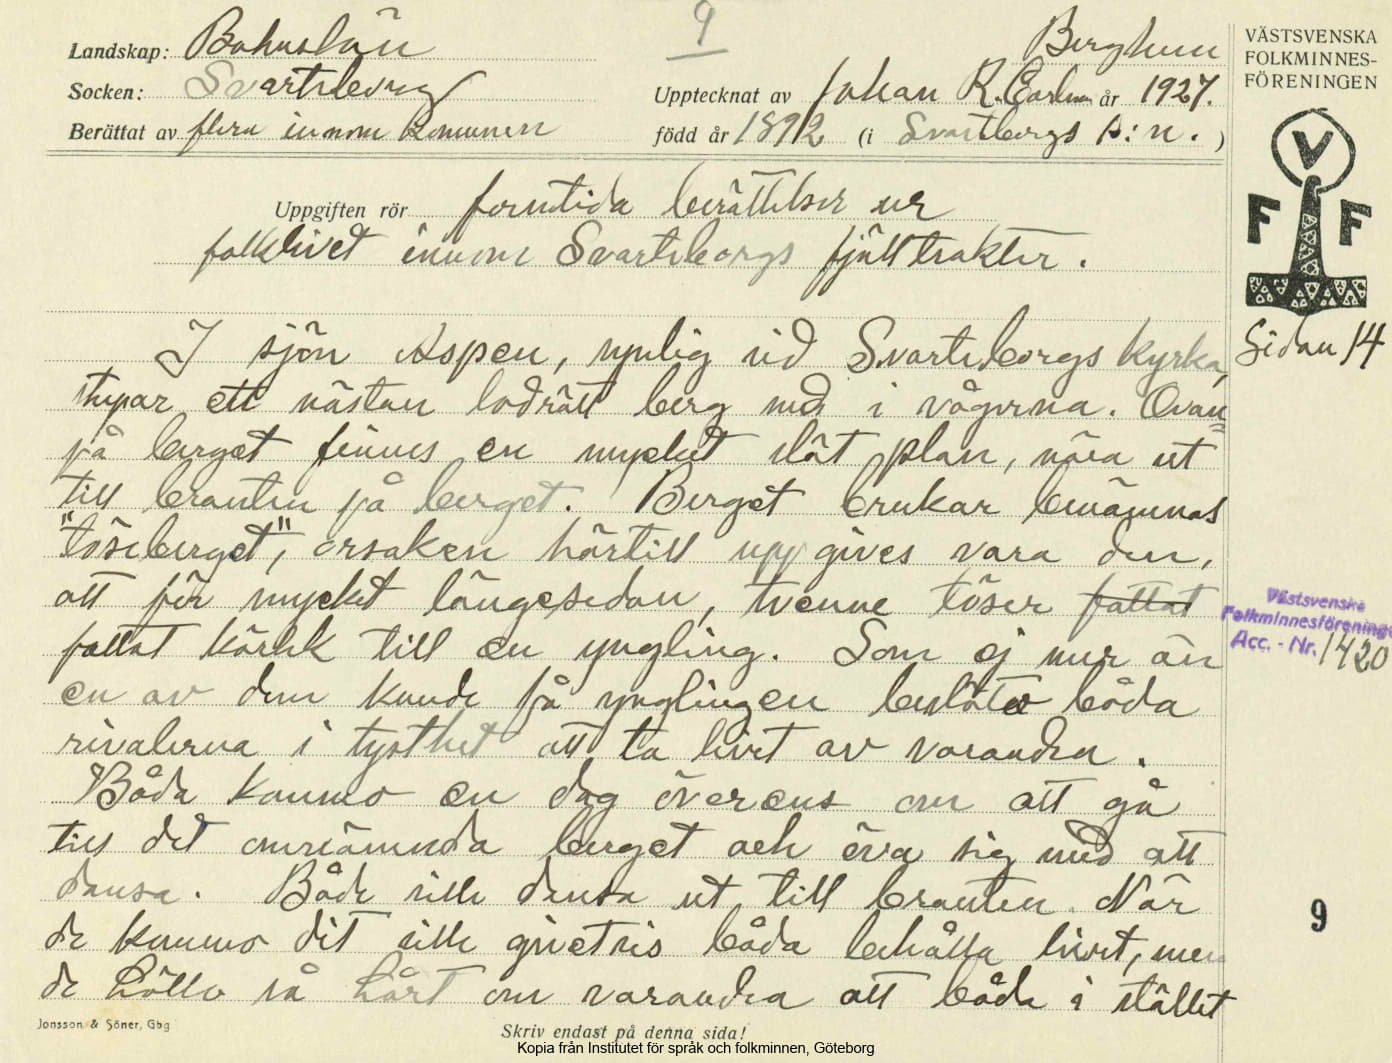 9
Landskap: Bohuslän
Berghem
VÄSTSVENSKA
FOLKMINNES-
FÖRENINGEN
Socken: Svarteborg
Upptecknat av Johan R. Carlsson år 1927.
Berättat av flera innom komunen
född år 1892 (i Svarteborgs s:n. )
V
F F
Uppgiften rör forntida berättelser ur
folklivet innom Svarteborgs fjälltrakter.
Sidan 14
I sjön Aspen, synlig vid Svarteborgs kyrka,
stupar ett nästan lodrätt berg ned i vågorna. Ovan=
på berget finnes en mycket slät plan, nära ut
till branten på berget. Berget brukar benämnas
"töseberget", orsaken härtill uppgives vara den,
att för mycket längesedan, tvenne töser fattat
fattat kärlek till en yngling. Som ej mer än
en av dem kunde få ynglingen beslöto båda
rivalerna i tysthet att ta livet av varandra.
Båda kommo en dag överens om att gå
till det omnämnda berget och öva sig med att
dansa. Både ville dansa ut till branten. När
de kommo dit ville givetvis båda behålla livet, men
de höllo så hårt om varandra att båda i stället
Västsvenska
Folkminnesföreningen
Acc. - Nr. 1420
9
Jonsson & Söner, Gbg
Skriv endast på denna sida!
Kopia från Institutet för språk och folkminnen, Göteborg